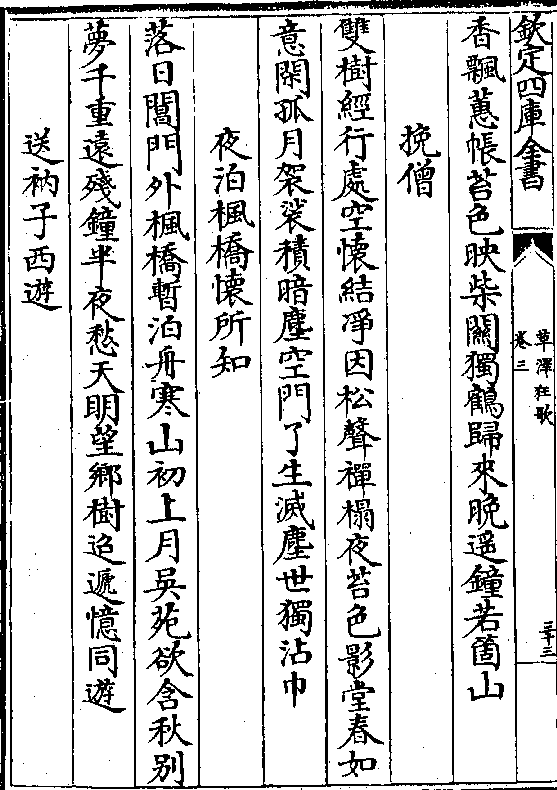 欽定四庫全書
草澤狂歌
卷三
香飄蕙帳苔色映柴關獨鶴歸來晚遥鐘若箇山
挽僧
雙樹經行處空懐結凈因松聲禪榻夜苔色影堂春如
意閑孤月袈裟積暗塵空門了生滅塵世獨沾巾
夜泊楓橋懐所知
落日閶門外楓橋暫泊舟寒山初上月吳苑欲含秋别
夢千重遠殘鐘半夜愁天明望鄉樹迢遞憶同遊
送衲子西遊